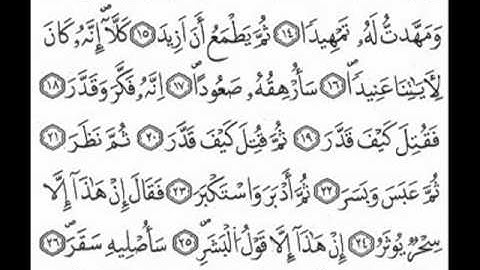 وَمَهَّدتُّ لَهُۥ تَمْهِيدًا ١٤ ثُمَّ يَطْمَعُ أَنْ أَزِيدَ ١٥ كَلَّآ إِنَّهُۥ كَانَ
لِأَيَـٰتِنَا عَنِيدًا ١٦ سَأُرْهِقُهُۥ صَعُودًا ١٧ إِنَّهُۥ فَكَّرَ وَقَدَّرَ ١٨
فَقُتِلَ كَيْفَ قَدَّرَ ١٩ ثُمَّ قُتِلَ كَيْفَ قَدَّرَ ٢٠ ثُمَّ نَظَرَ ٢١
ثُمَّ عَبَسَ وَبَسَرَ ٢٢ ثُمَّ أَدْبَرَ وَاسْتَكْبَرَ ٢٣ فَقَالَ إِنْ هَـٰذَآ إِلَّا
سِحْرٌ يُؤْثَرُ ٢٤ إِنْ هَـٰذَآ إِلَّا قَوْلُ الْبَشَرِ ٢٥ سَأُصْلِيهِ سَقَرَ ٢٦